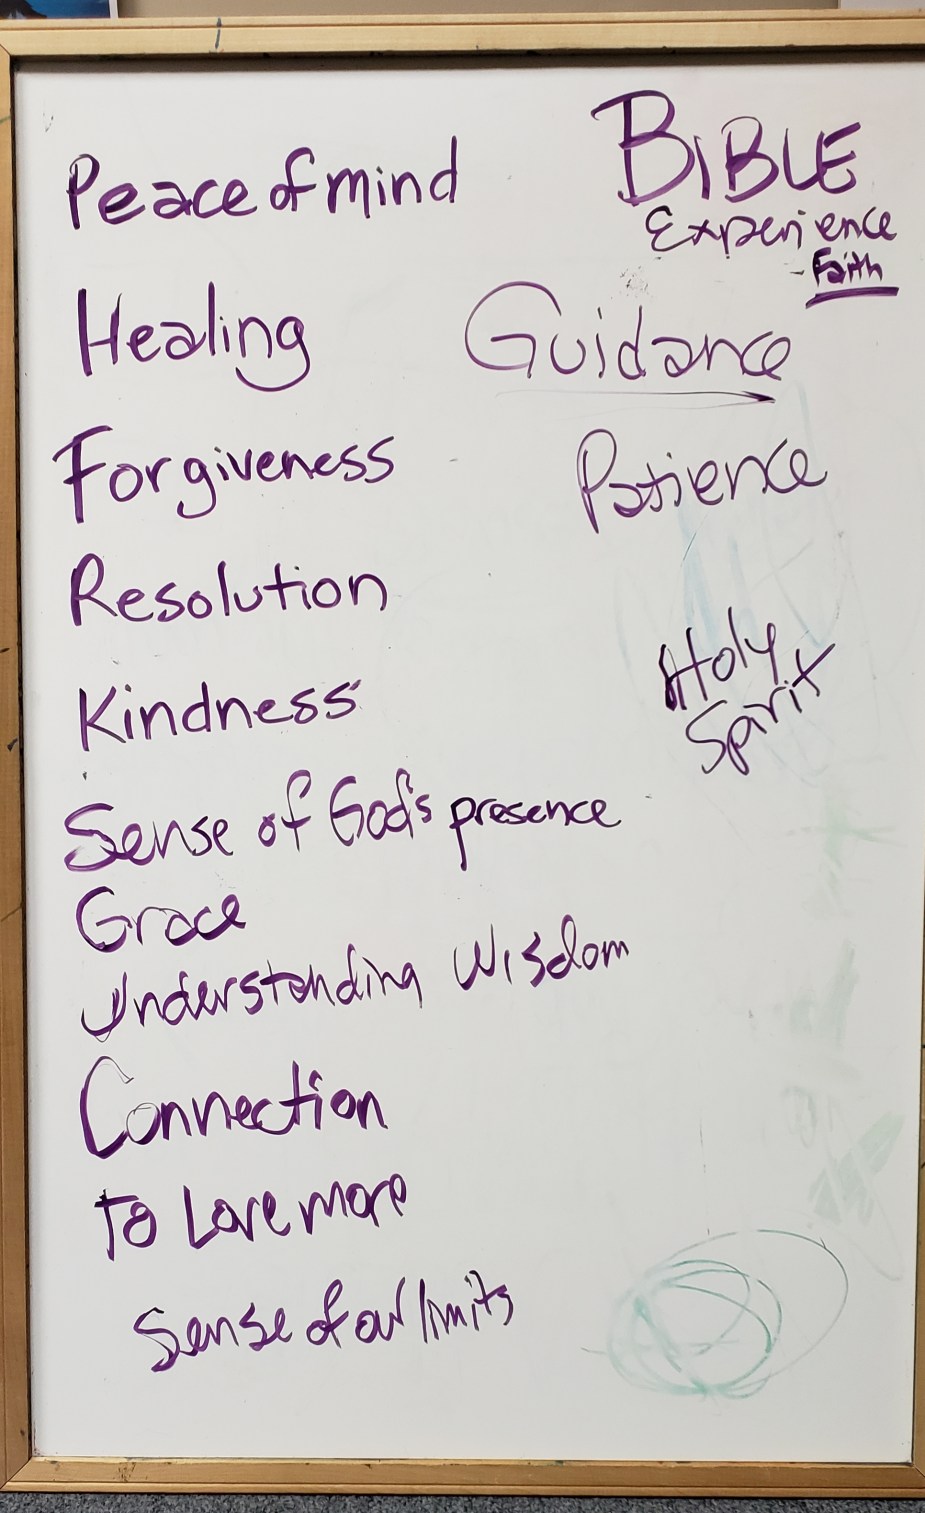 Peace of mind
BIBLE
Experience
- Faith
Healing
Guidance
Forgiveness
Patience
Resolution
Holy
Spirit
Kindness
Sense of God's presence
Grace
Understanding Wisdom
Connection
To Love more
Sense of our limits